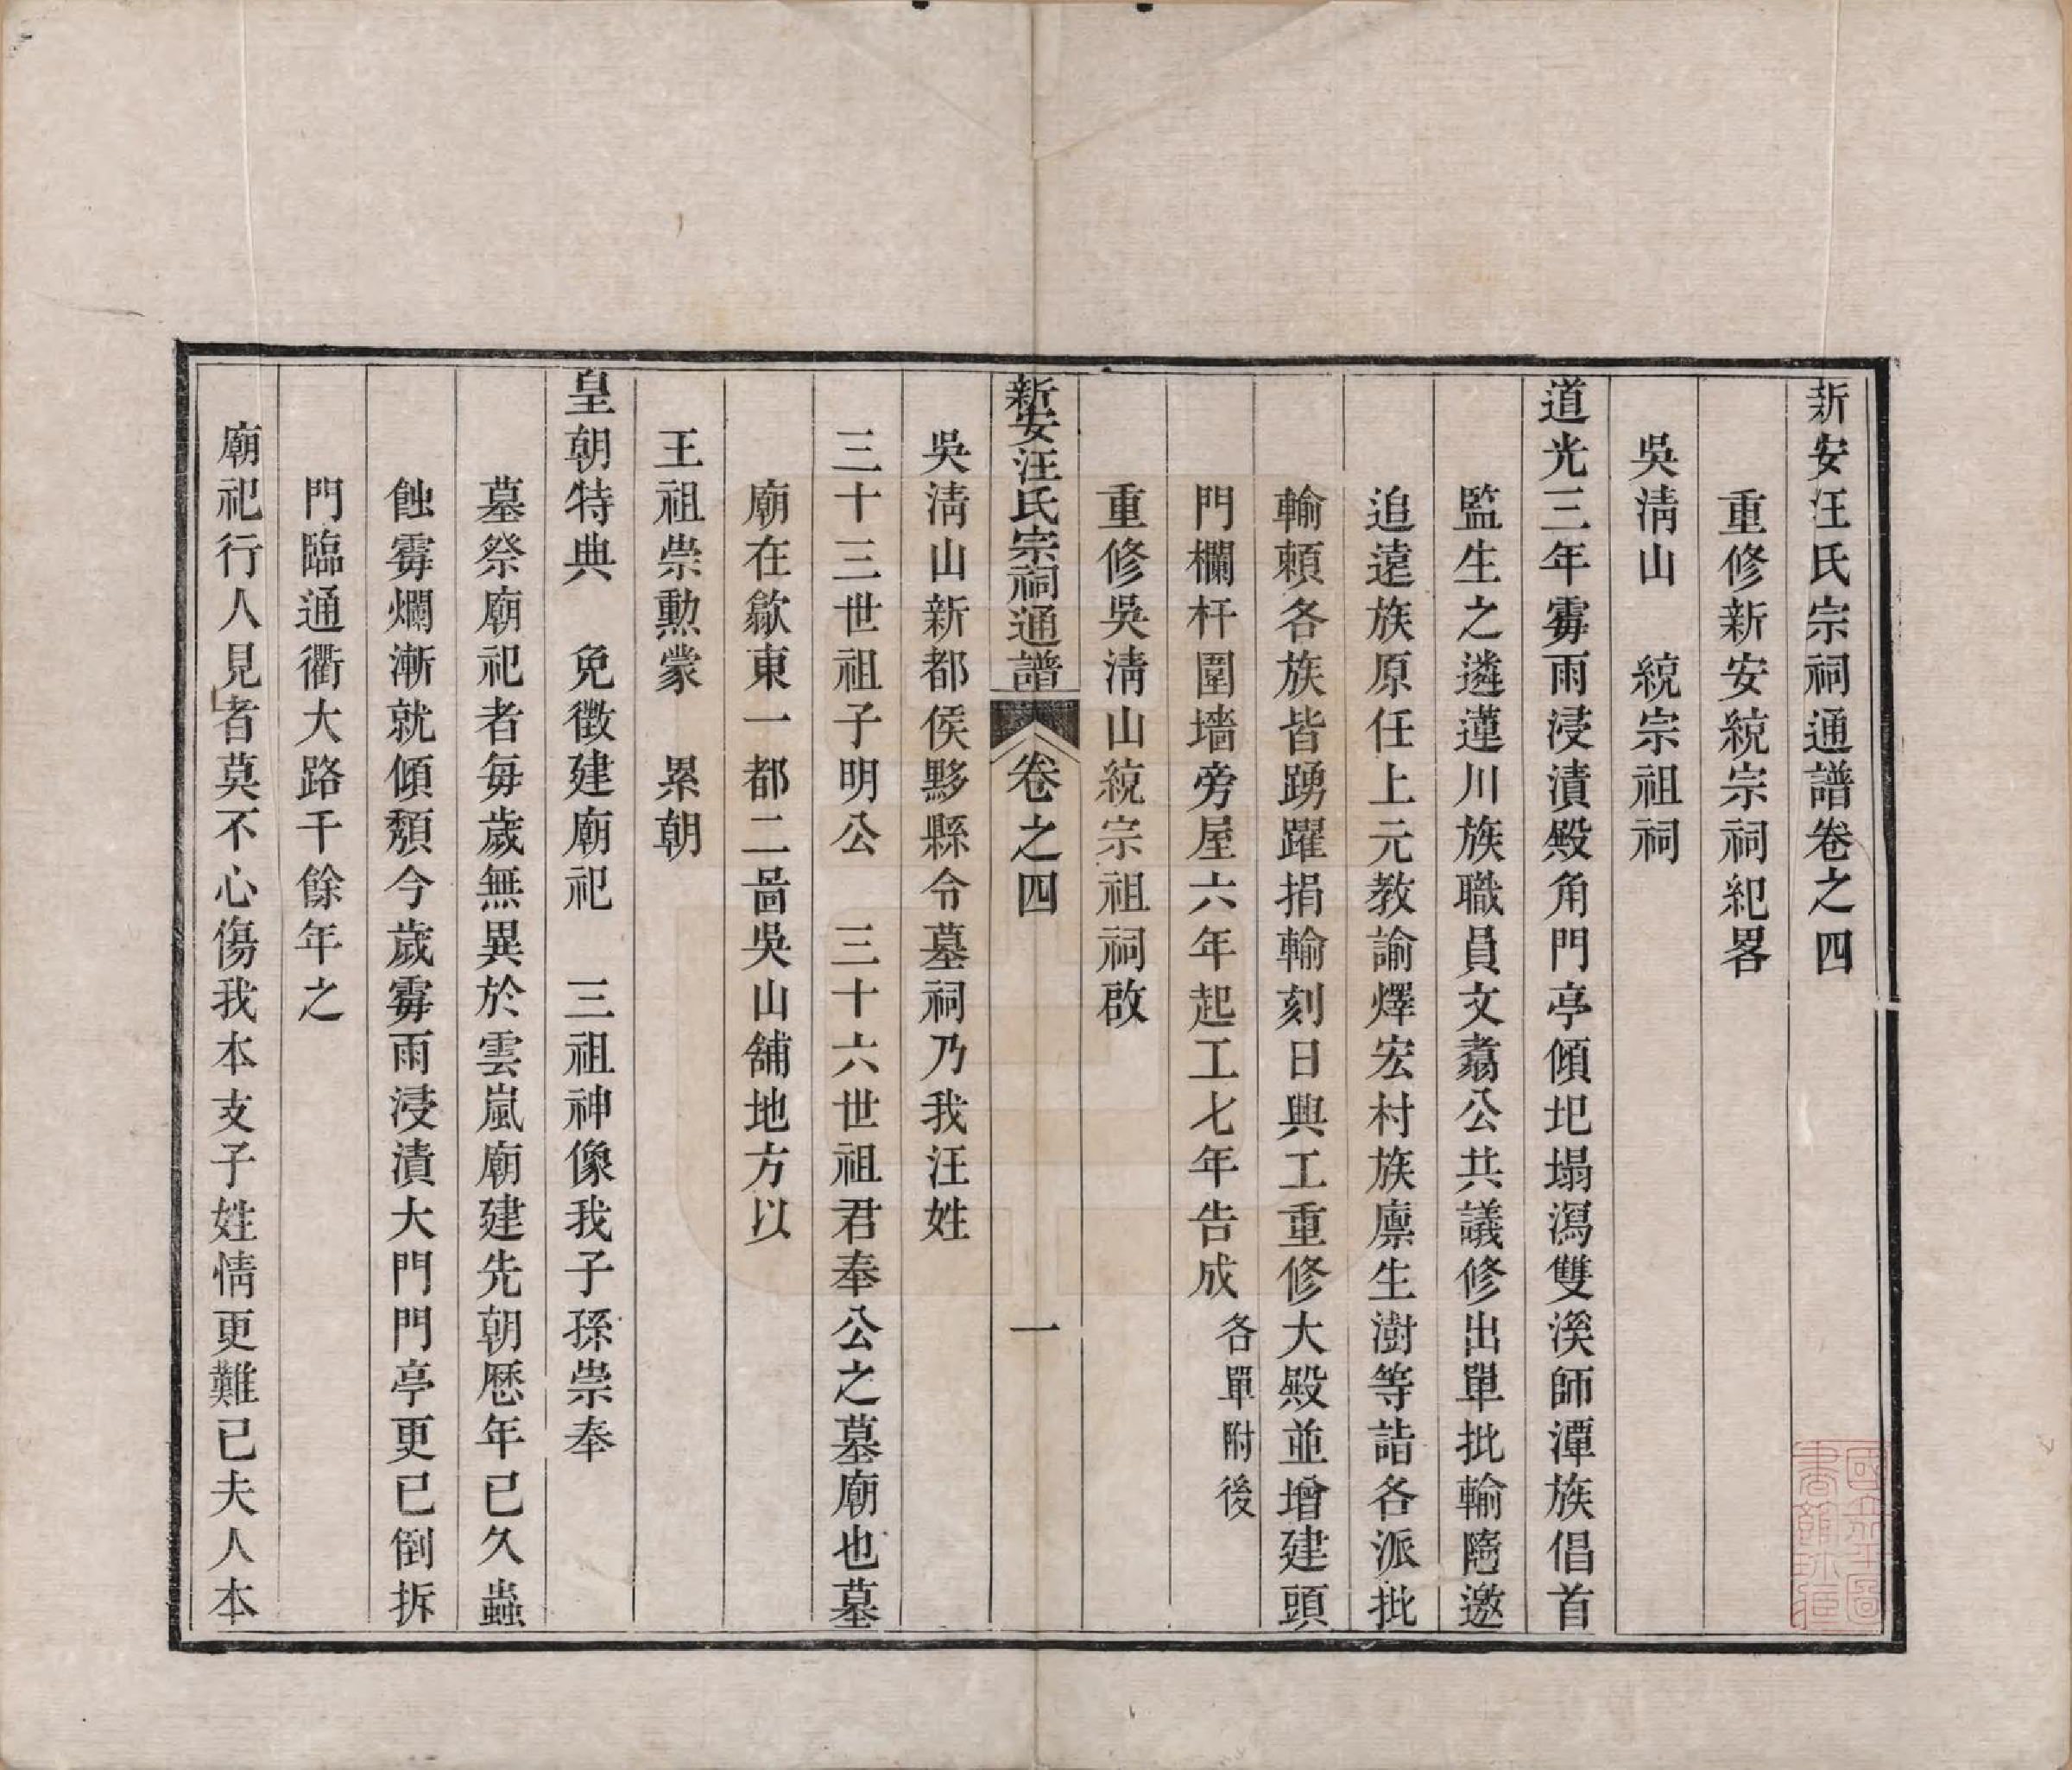 新安汪氏宗祠通譜卷之四
重修新安統宗祠紀畧
吳淸山　統宗祖祠
道光三年霧雨浸漬殿角門亭傾圯塌瀉雙溪師潭族倡首
監生之遴蓮川族職員文翥公共議修出單批輸隨邀
追遠族原任上元教諭燡宏村族廪生澍等詣各派批
輸頼各族皆踴躍捐輸刻日興工重修大殿並增建頭
門欄杆圍墻旁屋六年起工七年告成 各單附後
重修吳淸山統宗祖祠啟
新安汪氏宗祠通譜　卷之四　一
吳淸山新都侯黟縣令墓祠乃我汪姓
三十三世祖子明公　三十六世祖君奉公之墓廟也墓
廟在歙東一都二啚吳山舖地方以
王祖崇勳蒙　累朝
皇朝特典　免徴建廟祀　三祖神像我子孫崇奉
墓祭廟祀者每歲無異於雲嵐廟建先朝歴年已久蟲
蝕霧爛漸就傾頽今歲霧雨浸漬大門門亭更已倒拆
門臨通衢大路千餘年之
廟祀行人見者莫不心傷我本支子姓情更難已夫人本
國立北平圖書館珍藏